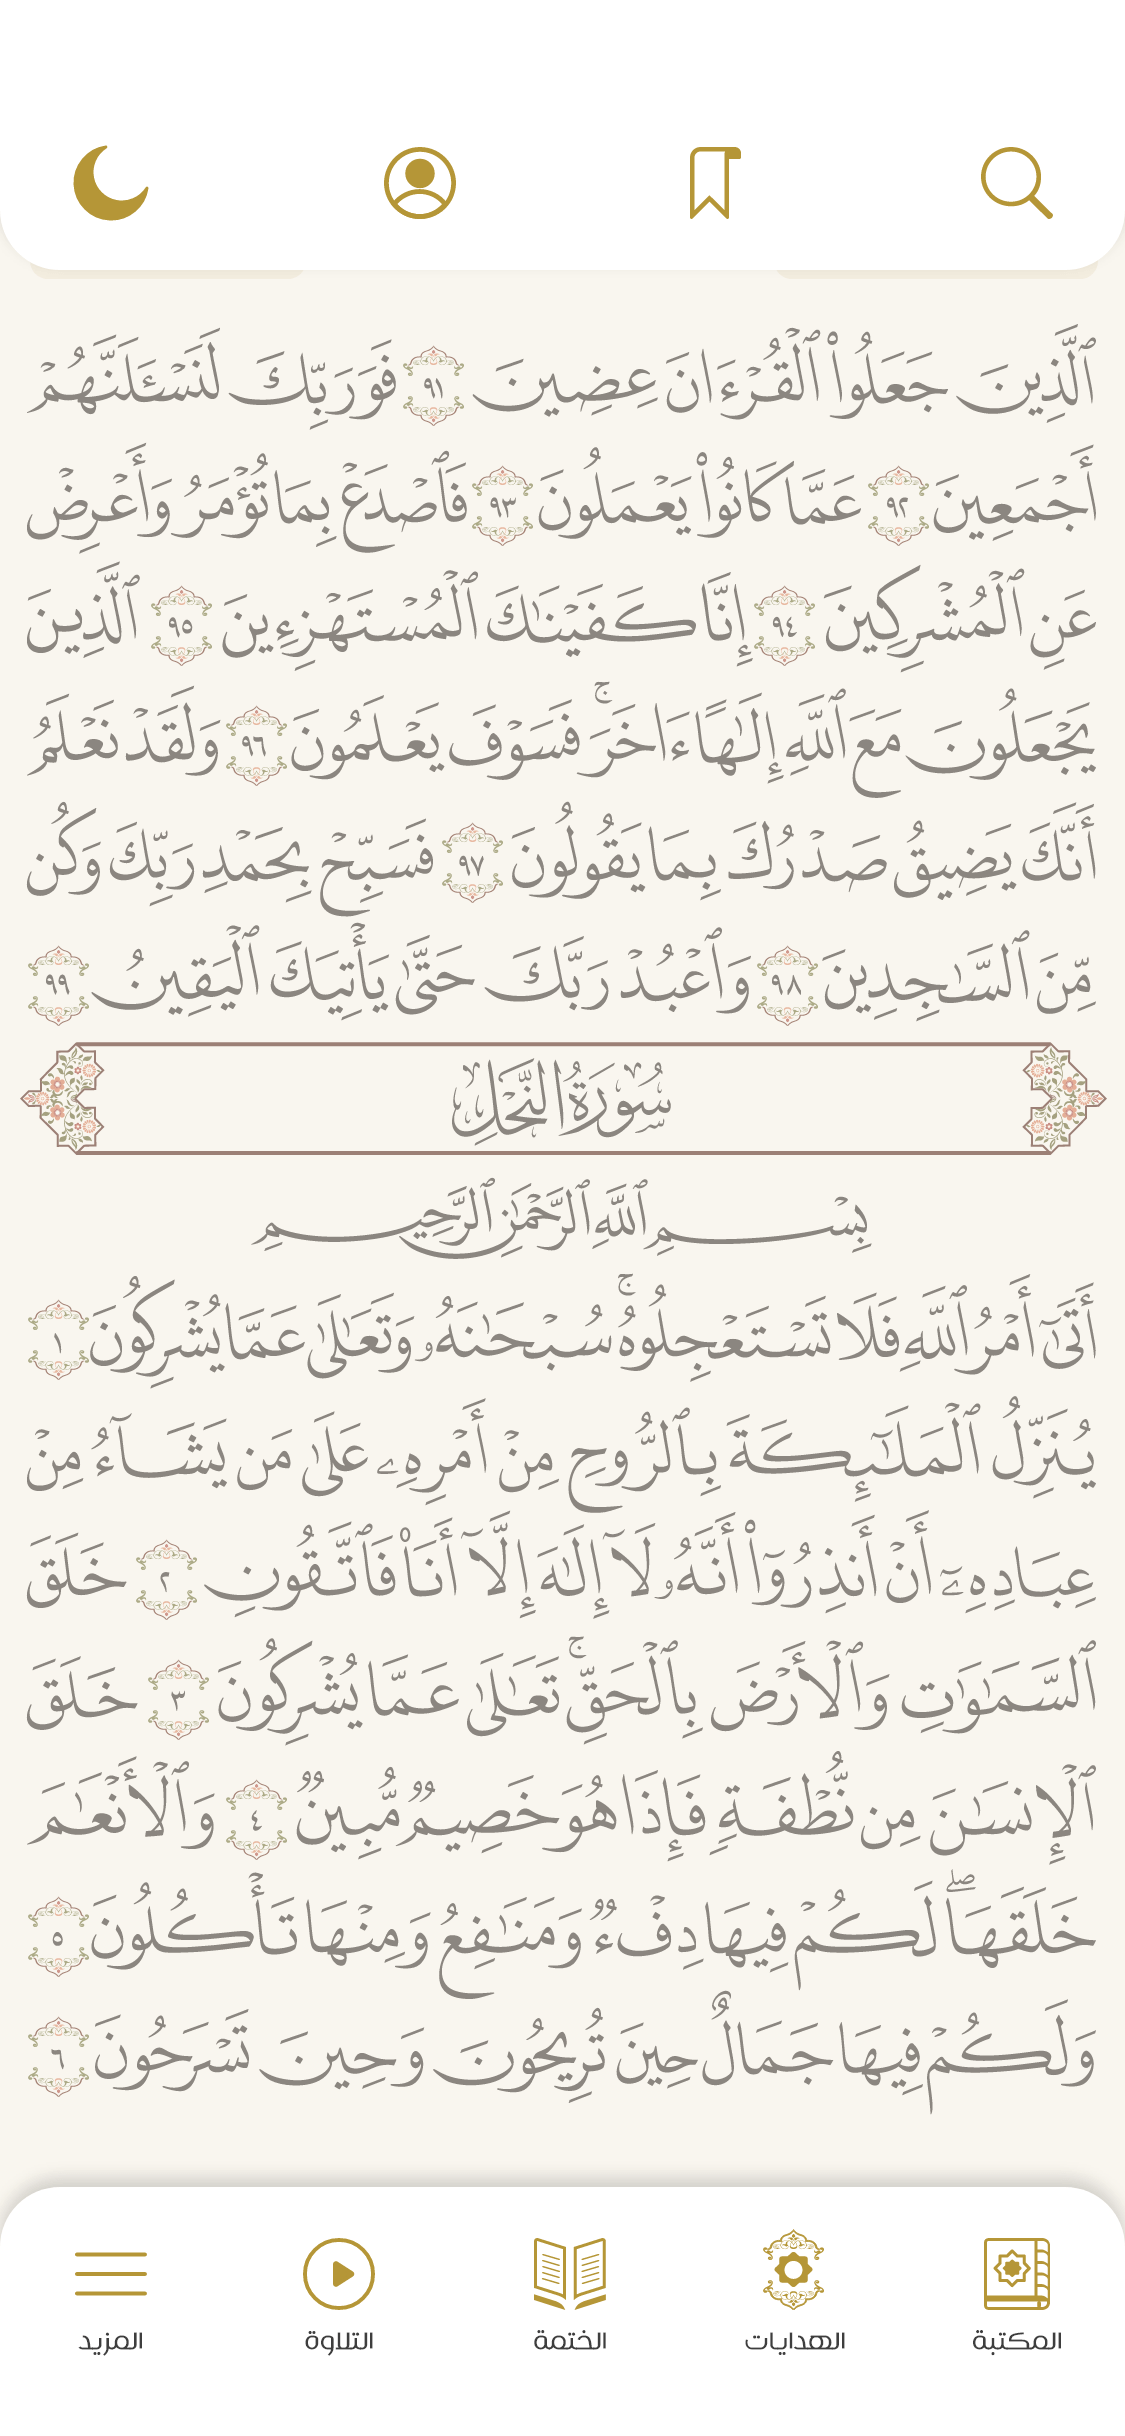 ٱلَّذِينَ جَعَلُوا۟ ٱلْقُرْءَانَ عِضِينَ ٩١ فَوَرَبِّكَ لَنَسْـَٔلَنَّهُمْ
أَجْمَعِينَ ٩٢ عَمَّا كَانُوا۟ يَعْمَلُونَ ٩٣ فَٱصْدَعْ بِمَا تُؤْمَرُ وَأَعْرِضْ
عَنِ ٱلْمُشْرِكِينَ ٩٤ إِنَّا كَفَيْنَـٰكَ ٱلْمُسْتَهْزِءِينَ ٩٥ ٱلَّذِينَ
يَجْعَلُونَ مَعَ ٱللَّهِ إِلَـٰهًا ءَاخَرَ ۚ فَسَوْفَ يَعْلَمُونَ ٩٦ وَلَقَدْ نَعْلَمُ
أَنَّكَ يَضِيقُ صَدْرُكَ بِمَا يَقُولُونَ ٩٧ فَسَبِّحْ بِحَمْدِ رَبِّكَ وَكُن
مِّنَ ٱلسَّـٰجِدِينَ ٩٨ وَٱعْبُدْ رَبَّكَ حَتَّىٰ يَأْتِيَكَ ٱلْيَقِينُ ٩٩
سُورَةُ النَّحْلِ
بِسْمِ ٱللَّهِ ٱلرَّحْمَـٰنِ ٱلرَّحِيمِ
أَتَىٰٓ أَمْرُ ٱللَّهِ فَلَا تَسْتَعْجِلُوهُ ۚ سُبْحَـٰنَهُۥ وَتَعَـٰلَىٰ عَمَّا يُشْرِكُونَ ١
يُنَزِّلُ ٱلْمَلَـٰٓئِكَةَ بِٱلرُّوحِ مِنْ أَمْرِهِۦ عَلَىٰ مَن يَشَآءُ مِنْ
عِبَادِهِۦٓ أَنْ أَنذِرُوٓا۟ أَنَّهُۥ لَآ إِلَـٰهَ إِلَّآ أَنَا۠ فَٱتَّقُونِ ٢ خَلَقَ
ٱلسَّمَـٰوَٰتِ وَٱلْأَرْضَ بِٱلْحَقِّ ۚ تَعَـٰلَىٰ عَمَّا يُشْرِكُونَ ٣ خَلَقَ
ٱلْإِنسَـٰنَ مِن نُّطْفَةٍ فَإِذَا هُوَ خَصِيمٌ مُّبِينٌ ٤ وَٱلْأَنْعَـٰمَ
خَلَقَهَا ۖ لَكُمْ فِيهَا دِفْءٌ وَمَنَـٰفِعُ وَمِنْهَا تَأْكُلُونَ ٥
وَلَكُمْ فِيهَا جَمَالٌ حِينَ تُرِيحُونَ وَحِينَ تَسْرَحُونَ ٦
المكتبة الهدايات الختمة التلاوة المزيد